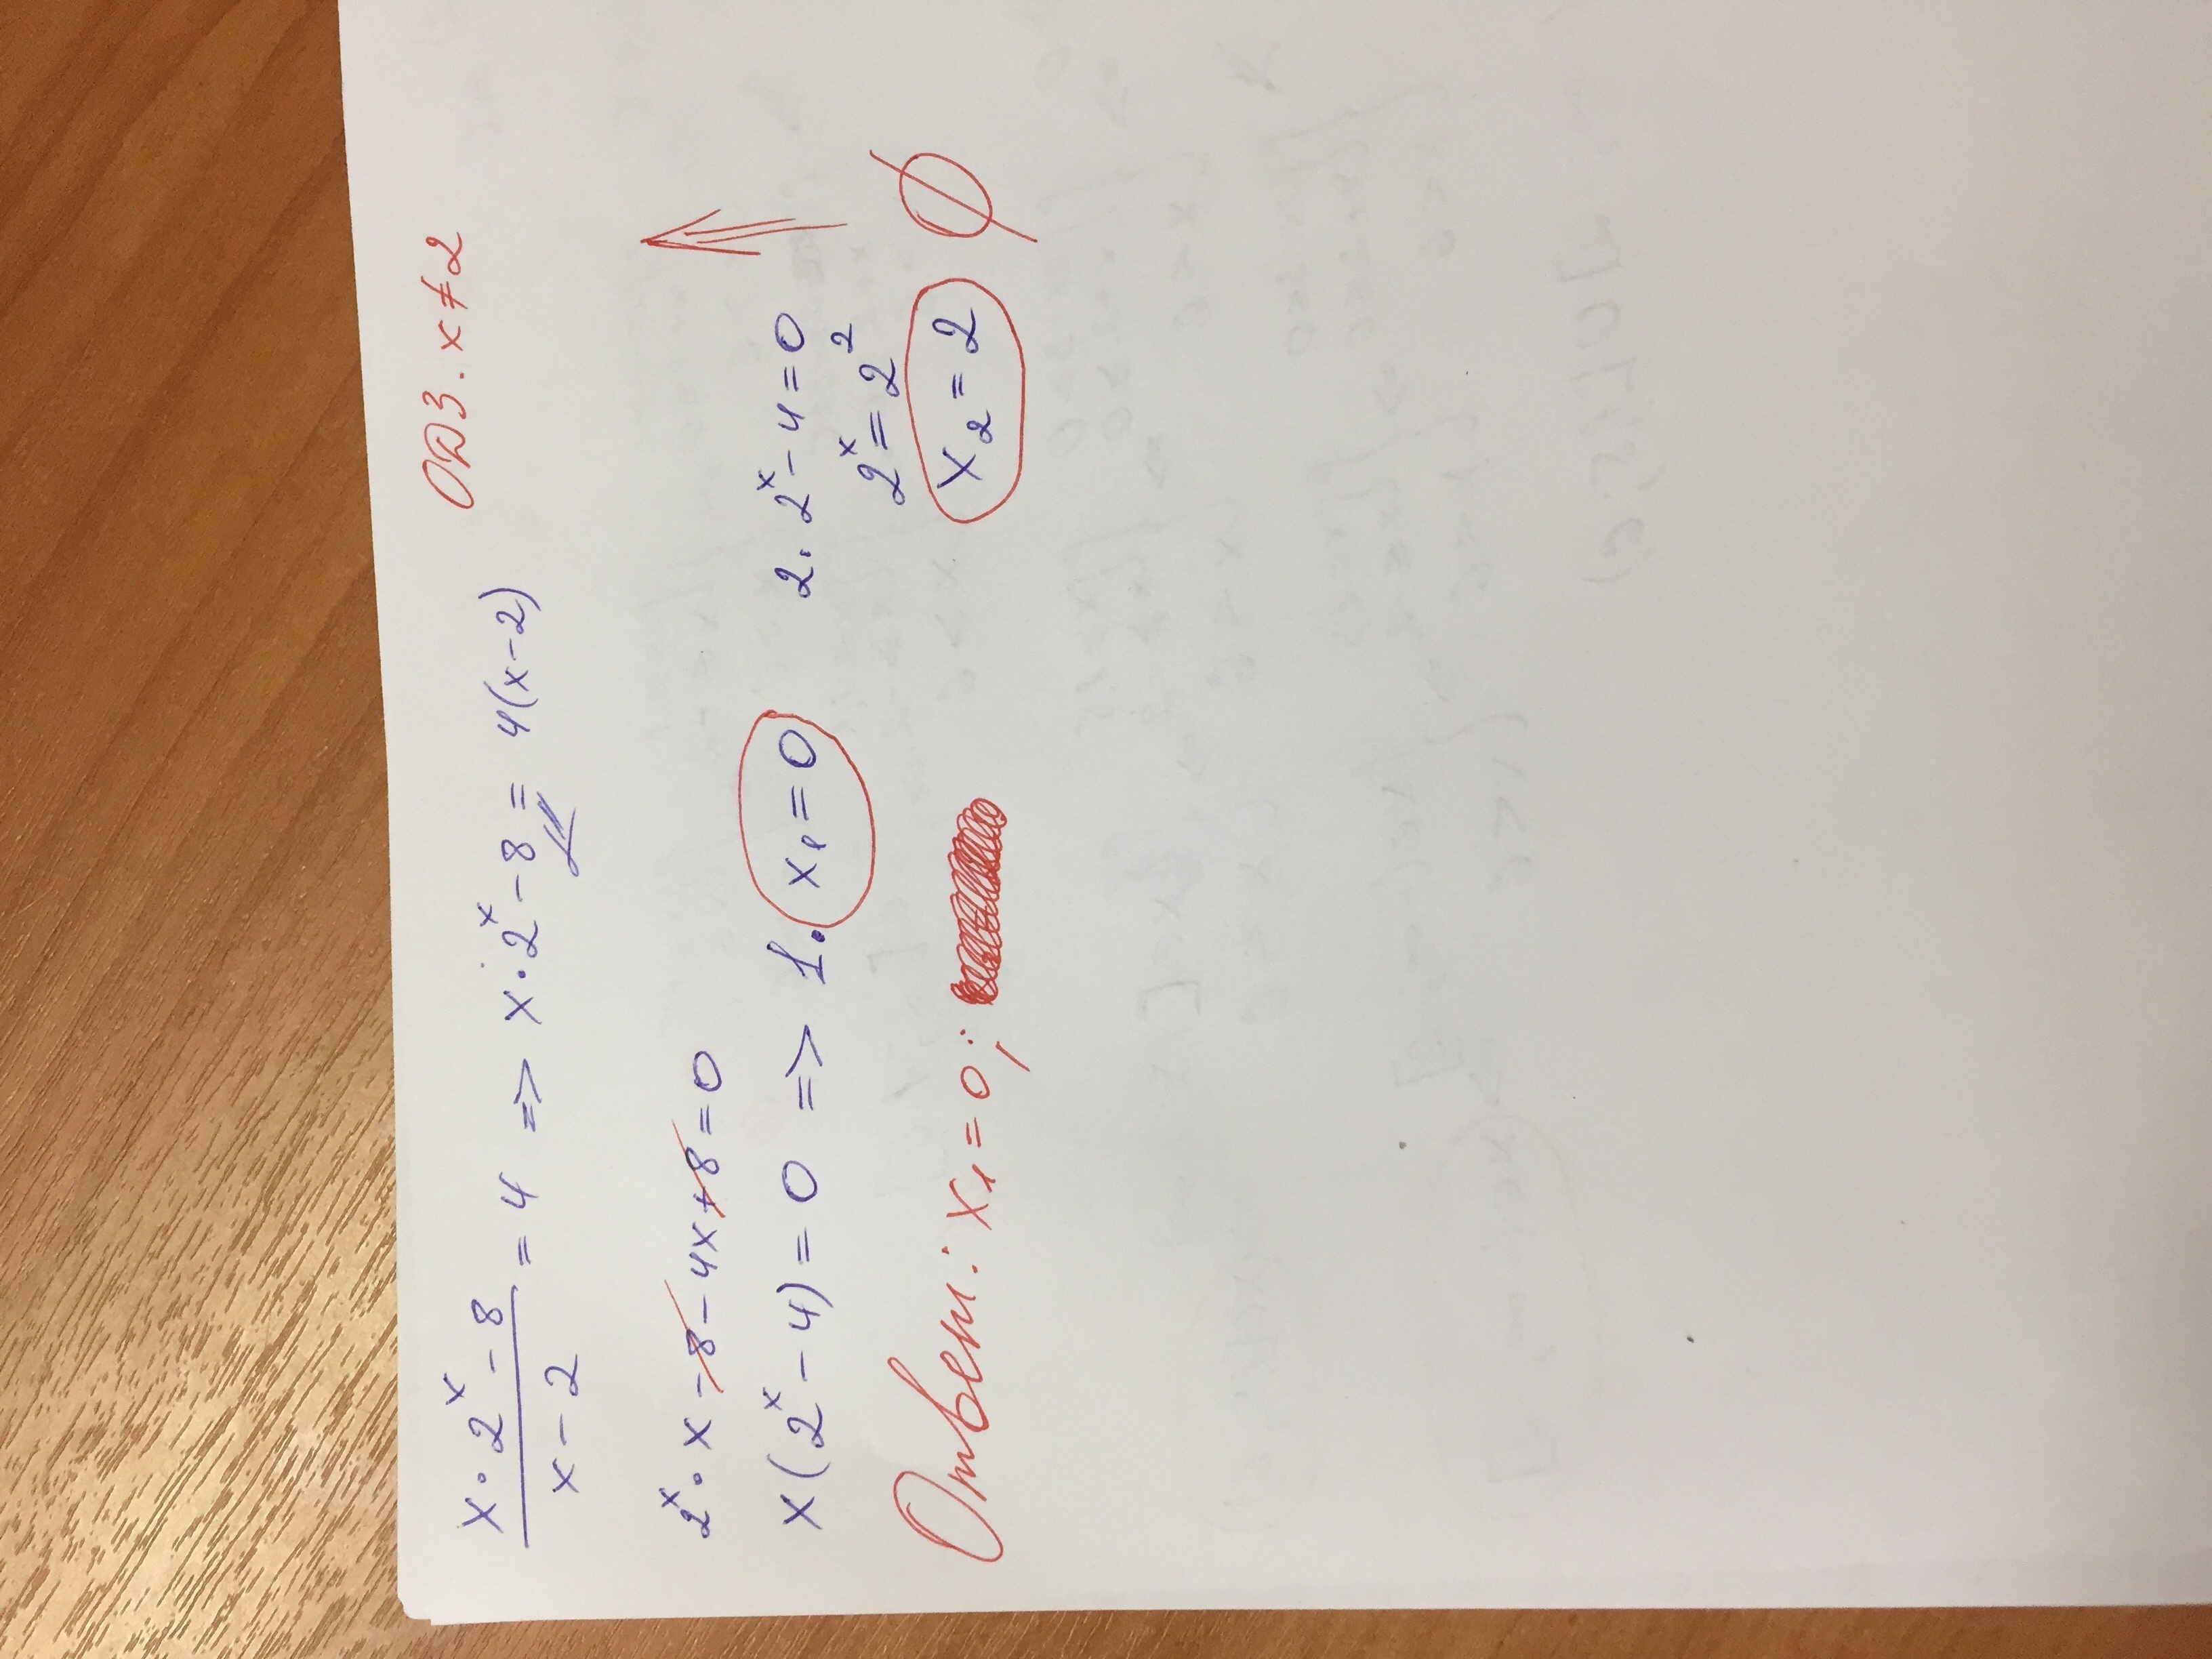 ОДЗ. x ≠ 2
x · 2^x − 8 / x − 2 = 4 => x · 2^x − 8 = 4(x−2)
2^x · x − 8 − 4x + 8 = 0
x(2^x − 4) = 0 => 1. x₁ = 0 2. 2^x − 4 = 0
2^x = 2^2
x₂ = 2 ∅
Ответ: x₁ = 0;